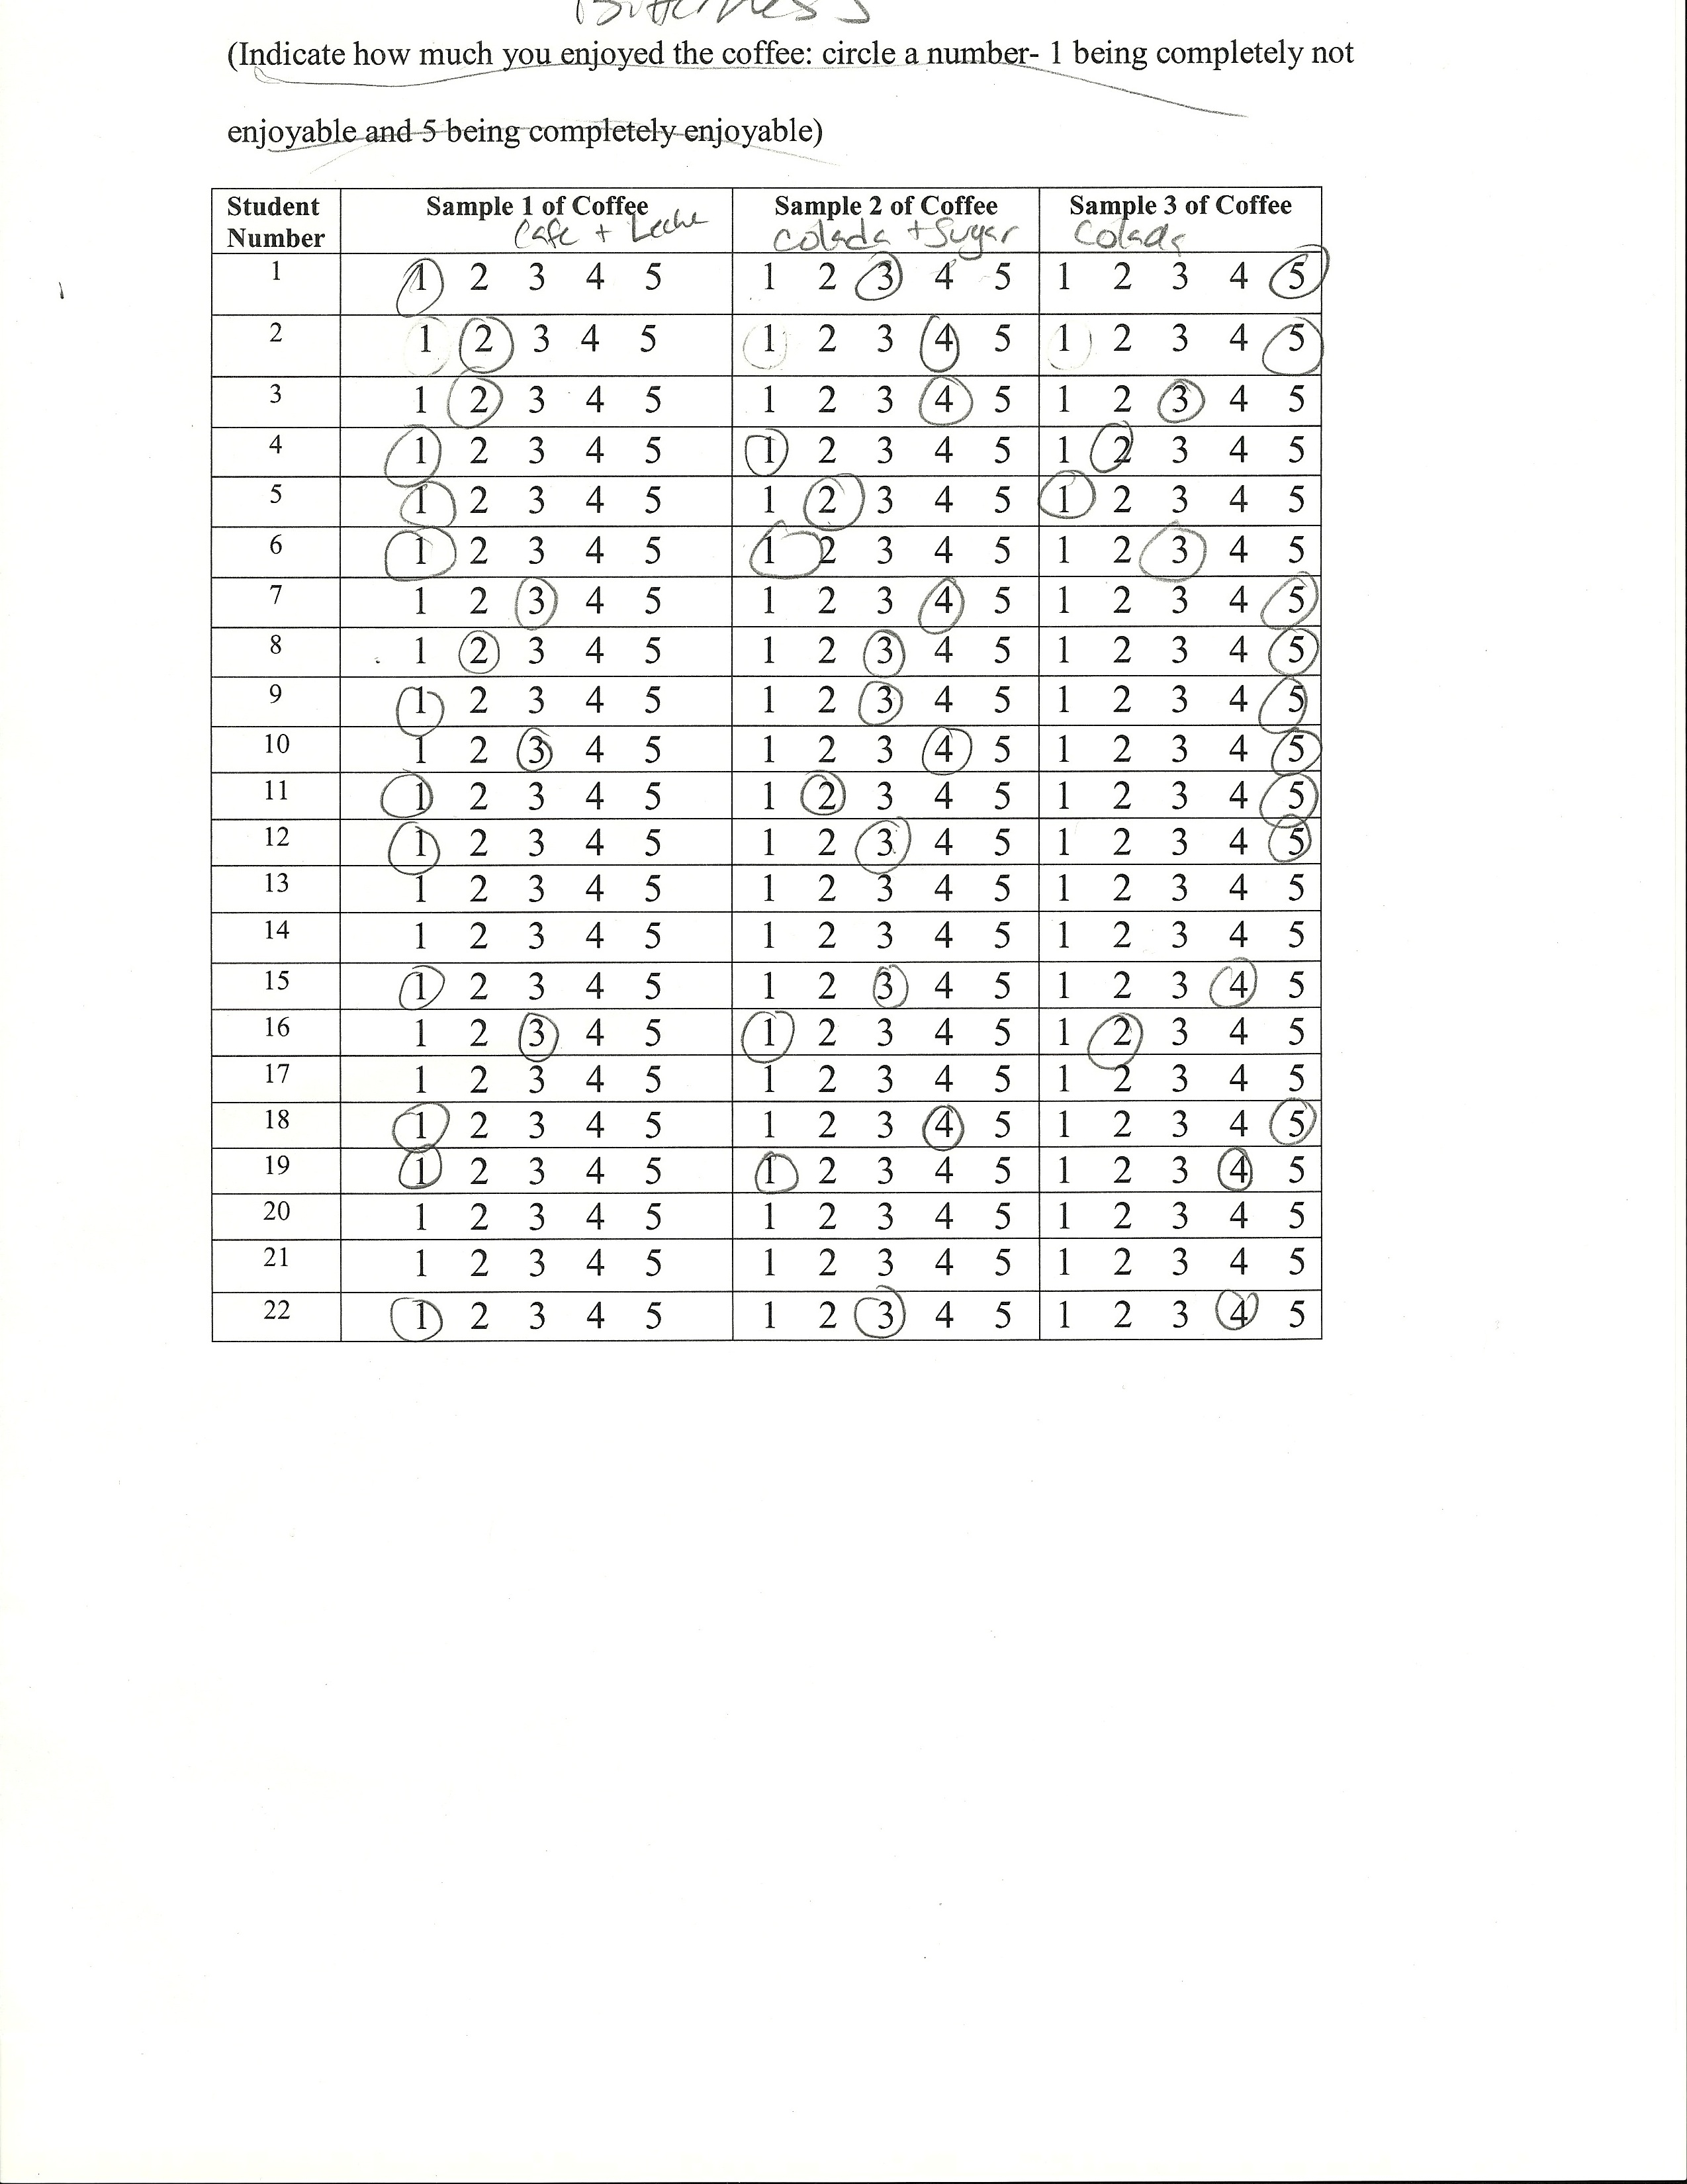 Bitterness
(Indicate how much you enjoyed the coffee: circle a number- 1 being completely not
enjoyable and 5 being completely enjoyable)
Student Number Sample 1 of Coffee Cafe + Leche Sample 2 of Coffee Colada + Sugar Sample 3 of Coffee Colada
1 1 2 3 4 5 1 2 3 4 5 1 2 3 4 5
2 1 2 3 4 5 1 2 3 4 5 1 2 3 4 5
3 1 2 3 4 5 1 2 3 4 5 1 2 3 4 5
4 1 2 3 4 5 1 2 3 4 5 1 2 3 4 5
5 1 2 3 4 5 1 2 3 4 5 1 2 3 4 5
6 1 2 3 4 5 1 2 3 4 5 1 2 3 4 5
7 1 2 3 4 5 1 2 3 4 5 1 2 3 4 5
8 1 2 3 4 5 1 2 3 4 5 1 2 3 4 5
9 1 2 3 4 5 1 2 3 4 5 1 2 3 4 5
10 1 2 3 4 5 1 2 3 4 5 1 2 3 4 5
11 1 2 3 4 5 1 2 3 4 5 1 2 3 4 5
12 1 2 3 4 5 1 2 3 4 5 1 2 3 4 5
13 1 2 3 4 5 1 2 3 4 5 1 2 3 4 5
14 1 2 3 4 5 1 2 3 4 5 1 2 3 4 5
15 1 2 3 4 5 1 2 3 4 5 1 2 3 4 5
16 1 2 3 4 5 1 2 3 4 5 1 2 3 4 5
17 1 2 3 4 5 1 2 3 4 5 1 2 3 4 5
18 1 2 3 4 5 1 2 3 4 5 1 2 3 4 5
19 1 2 3 4 5 1 2 3 4 5 1 2 3 4 5
20 1 2 3 4 5 1 2 3 4 5 1 2 3 4 5
21 1 2 3 4 5 1 2 3 4 5 1 2 3 4 5
22 1 2 3 4 5 1 2 3 4 5 1 2 3 4 5